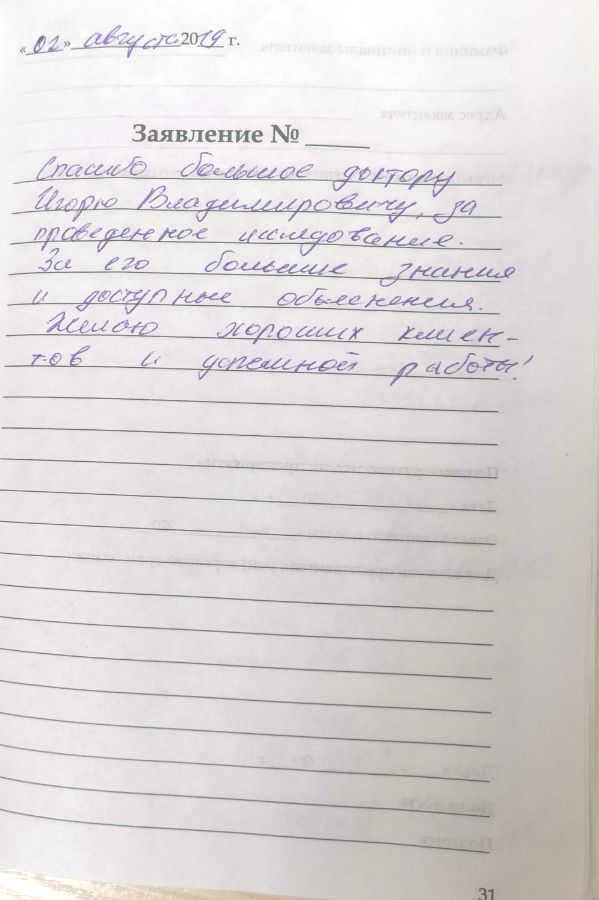 «02» августа 2019 г.
Заявление № ______
Спасибо большое доктору
Игорю Владимировичу, за
проведенное исследование.
За его большие знания
и доступные объяснения.
Желаю хороших клиен-
тов и успешной работы!
31